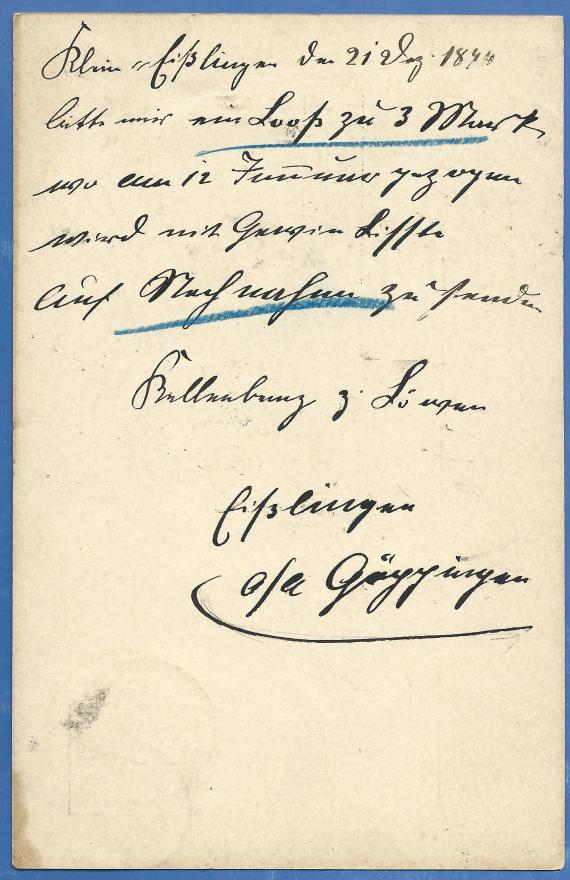 Klein-Eißlingen den 21 Dez.
bitte mir ein Looß zu 3 Mark,
wo am 12 Januar gezogen
wird mit Gewin Lisste
auf Nachnahme zu senden
Kellenbenz z. Löwen
Eißlingen
o/a Göppingen